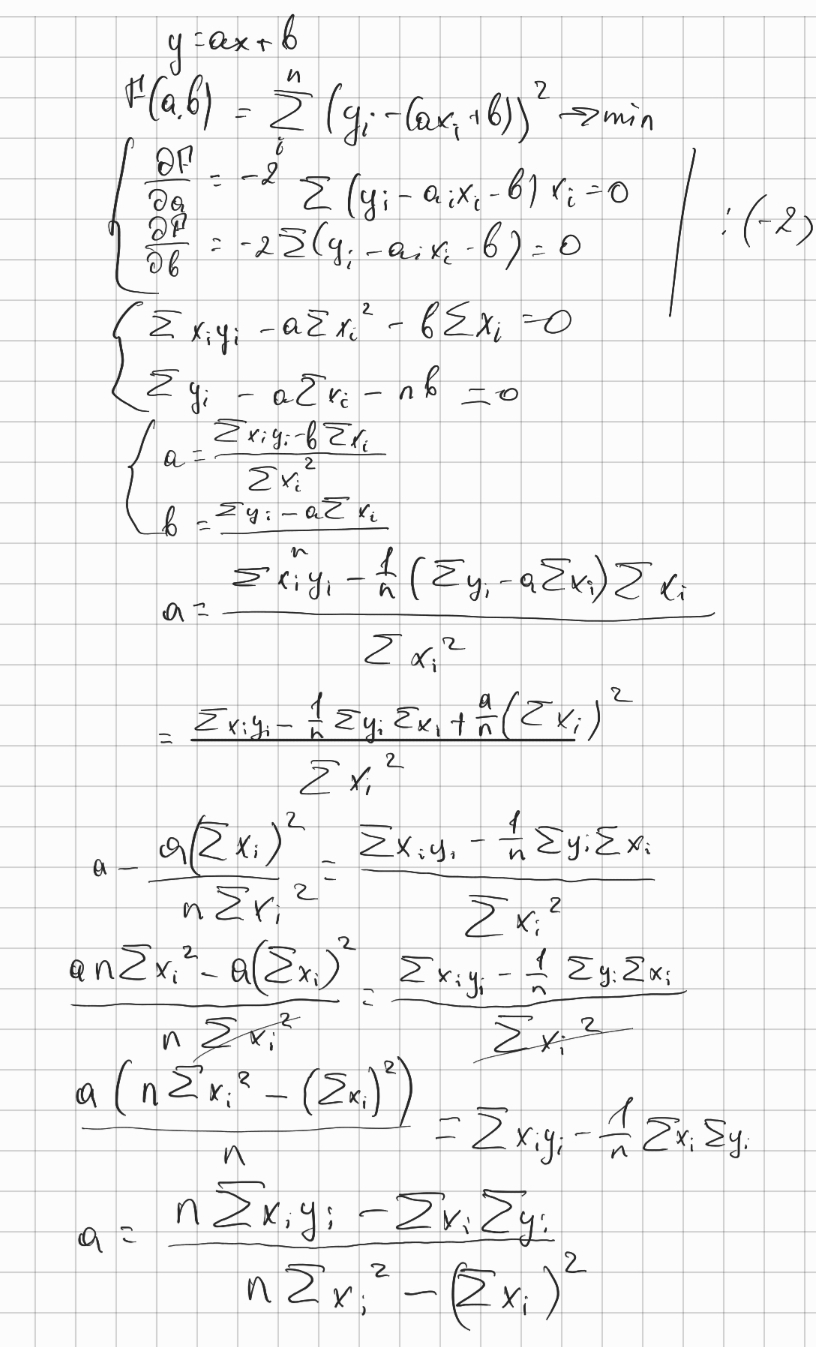 y = ax + b
F(a,b) = Σ_i^n (y_i - (ax_i + b))^2 → min
{ ∂F/∂a = -2 Σ (y_i - a_i x_i - b) x_i = 0 | : (-2)
{ ∂F/∂b = -2 Σ (y_i - a_i x_i - b) = 0
{ Σ x_i y_i - a Σ x_i^2 - b Σ x_i = 0
{ Σ y_i - a Σ x_i - n b = 0
{ a = (Σ x_i y_i - b Σ x_i) / (Σ x_i^2)
{ b = (Σ y_i - a Σ x_i) / n
a = (Σ x_i y_i - 1/n (Σ y_i - a Σ x_i) Σ x_i) / (Σ x_i^2)
= (Σ x_i y_i - 1/n Σ y_i Σ x_i + a/n (Σ x_i)^2) / (Σ x_i^2)
a - (a(Σ x_i)^2) / (n Σ x_i^2) = (Σ x_i y_i - 1/n Σ y_i Σ x_i) / (Σ x_i^2)
(a n Σ x_i^2 - a(Σ x_i)^2) / (n Σ x_i^2) = (Σ x_i y_i - 1/n Σ y_i Σ x_i) / (Σ x_i^2)
(a (n Σ x_i^2 - (Σ x_i)^2)) / n = Σ x_i y_i - 1/n Σ x_i Σ y_i
a = (n Σ x_i y_i - Σ x_i Σ y_i) / (n Σ x_i^2 - (Σ x_i)^2)